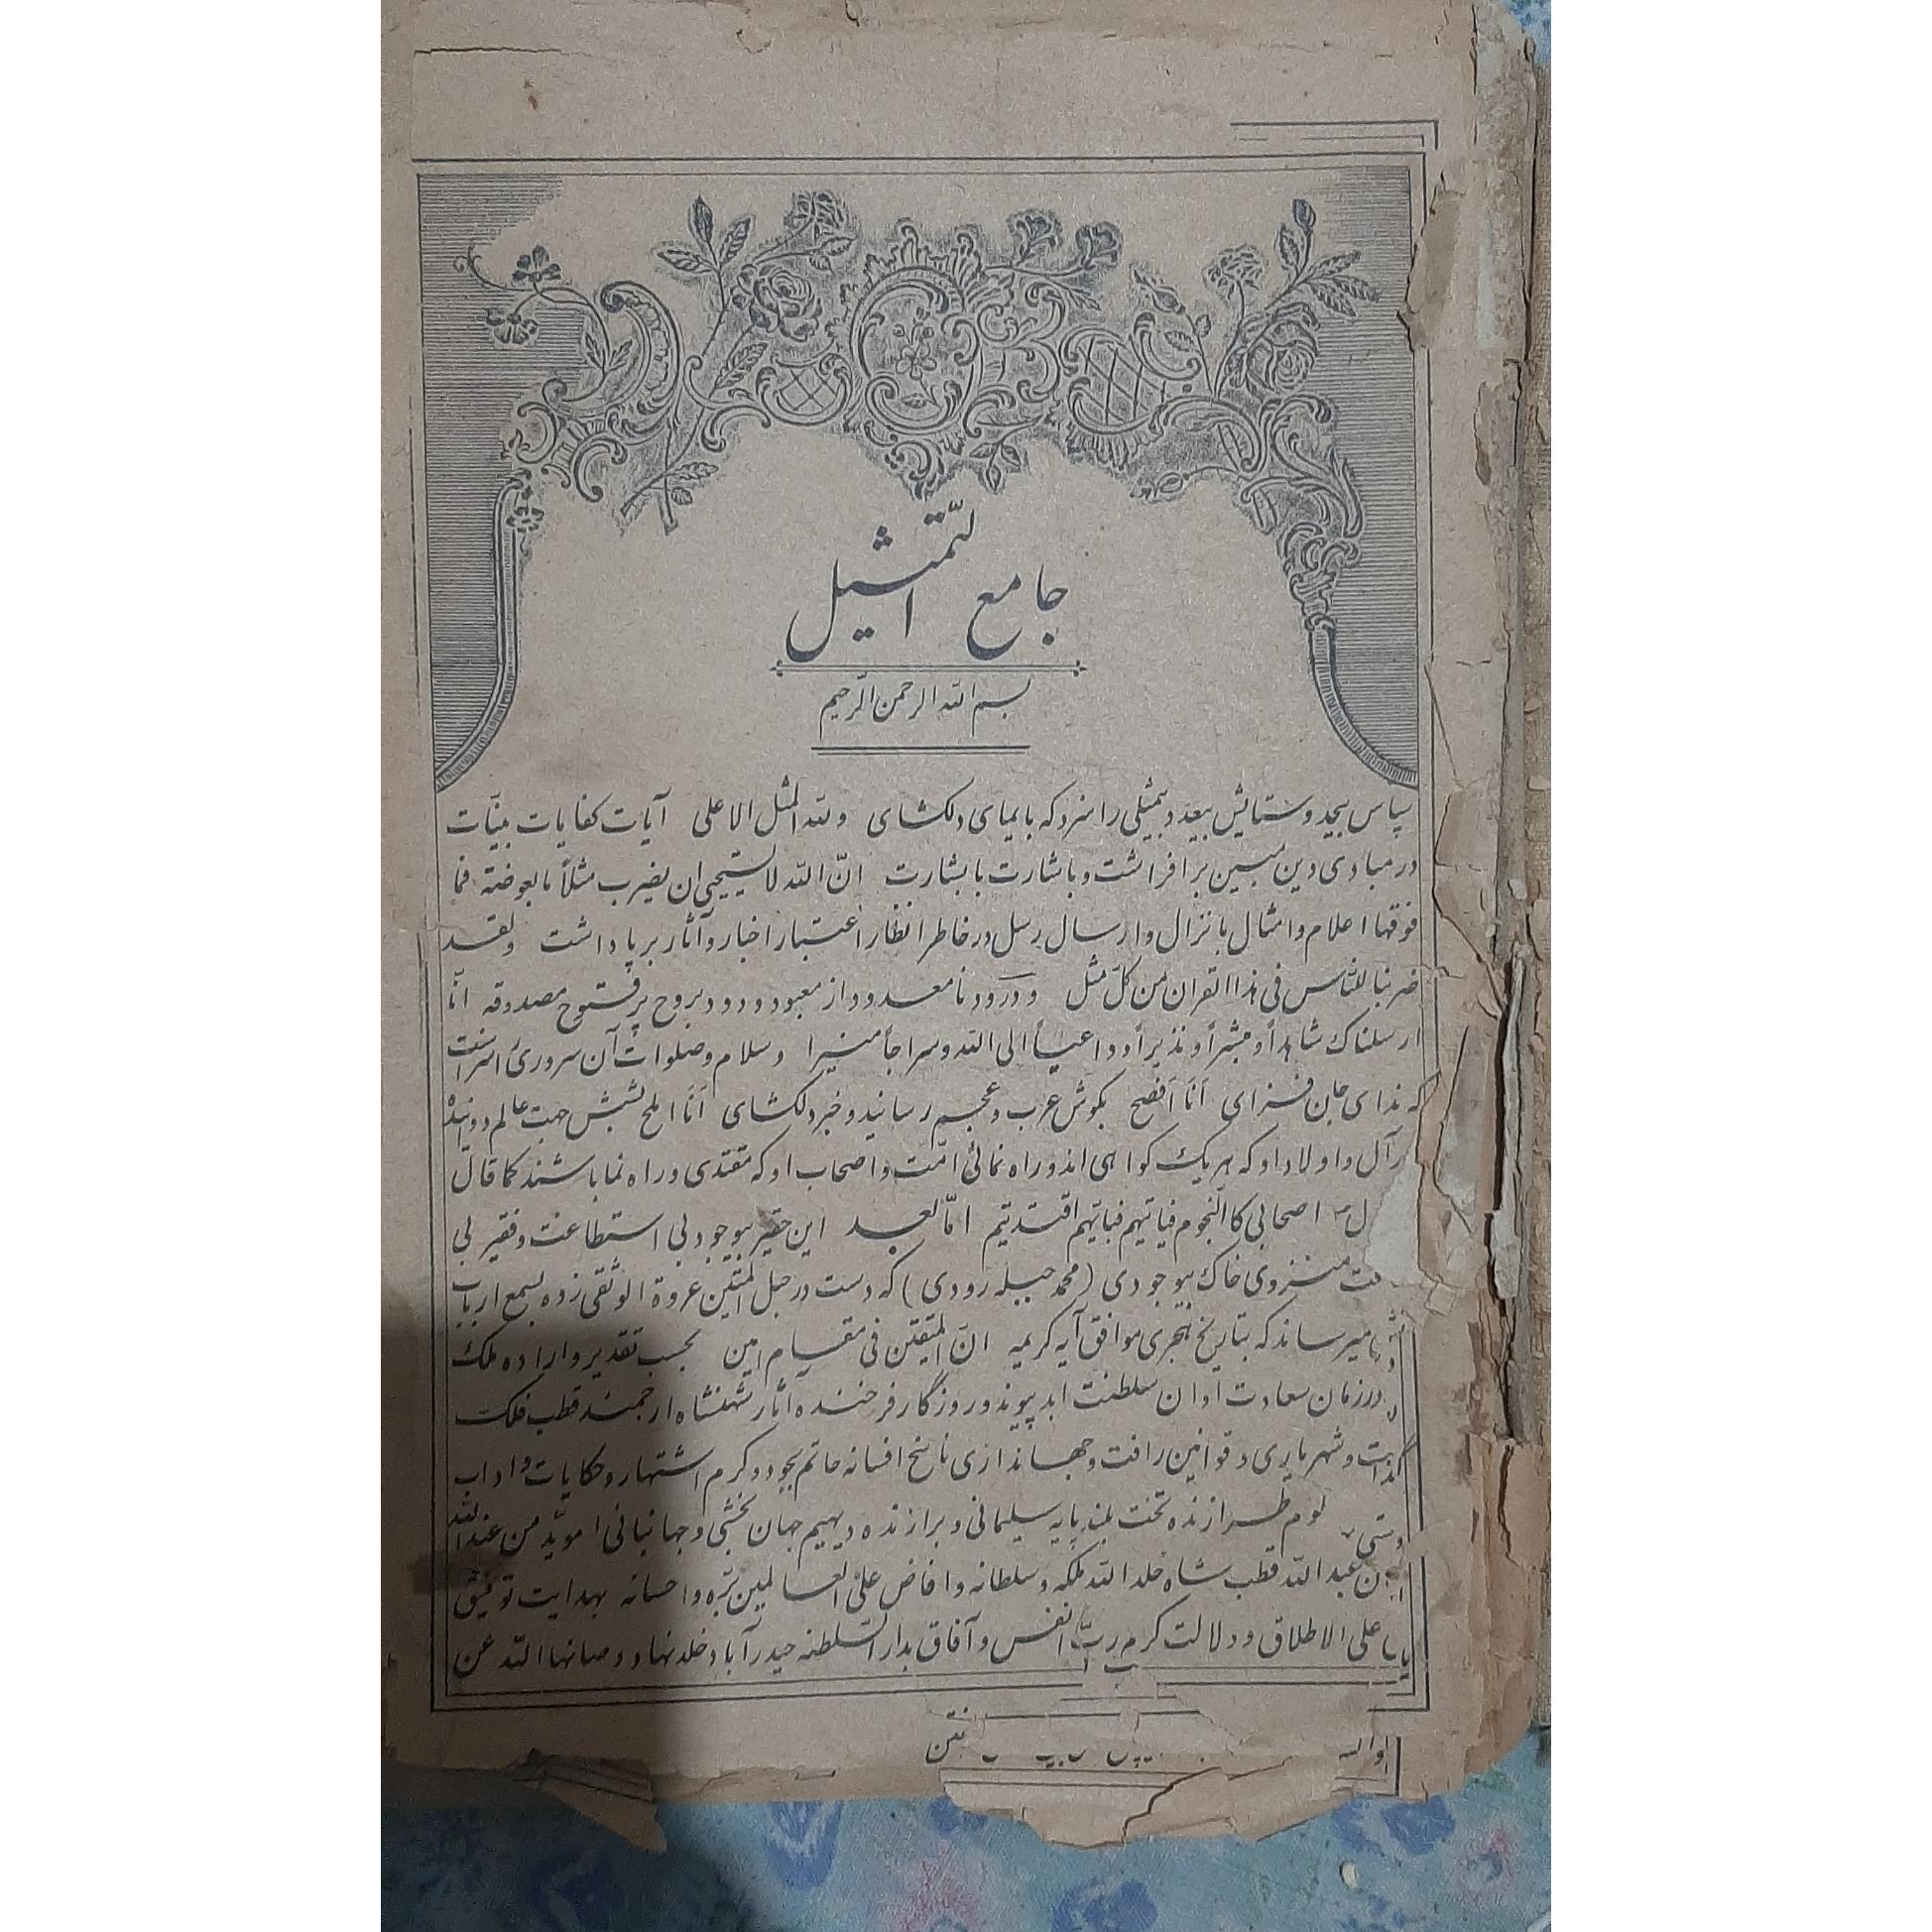 جامع التّمثیل
بسم الله الرحمن الرّحیم
سپاس بیحد و ستایش بیعد و بیمثیلی را سزد که بایمای دلکشای ولله المثل الاعلی آیات کفایات بیّنات
در مبادی دین مبین برافراشت و باشارت بابشارت انّ الله لا یستحیی ان یضرب مثلاً ما بعوضة فما
فوقها اعلام و امثال بانزال و ارسال رسل در خاطر انظار اعتبار اخبار و آثار برپا داشت و لقد
ضربنا للنّاس فی هذا القران من کلّ مثل و درود نامعدود از معبود ودود بروح پر فتوح مصدوقه انّا
ارسلناک شاهداً و مبشراً و نذیراً و داعیاً الی الله و سراجاً منیرا و سلام و صلوات آن سروری را سزاست
که ندای جان فزای اَنَا اَفصح بگوش عرب و عجم رسانید و خبر دلکشای اَنَا املح بشش جهت عالم دوانیده
آل و اولاد او که هریک گواهی اند و راه نمائی امّت و اصحاب او که مقتدی و راه نما باشند کما قال
اصحابی کالنجوم فبایّهم اقتدیتم امّا بعد این حقیر بیوجود بی استطاعت و فقیر بی
منزوی خاک بیوجودی (محمد حبله رودی) که دست در حبل المتین عروة الوثقی زده بسمع ارباب
میرساند که بتاریخ هجری موافق آیه کریمه انّ المتقین فی مقام امین بحسب تقدیر و اراده ملک
در زمان سعادت اوان سلطنت ابد پیوند و روزگار فرخنده آثار شهنشاه ارجمند قطب فلک
و شهریاری و قوانین رافت و جهانداری ناسخ افسانه حاتم بجود و کرم اشتهار و حکایات و اداب
طرازنده تخت بلند پایه سلیمانی و برازنده دیهیم جهان بخشی و جهانبانی الموید من عند الله
عبدالله قطب شاه خلد الله ملکه و سلطانه و افاض علی العالمین برّه و احسانه بهدایت توفیق
علی الاطلاق و دلالت کرم ربّ انفس و آفاق بدار السّلطنه حیدرآباد خلدنها و صانها الله عن